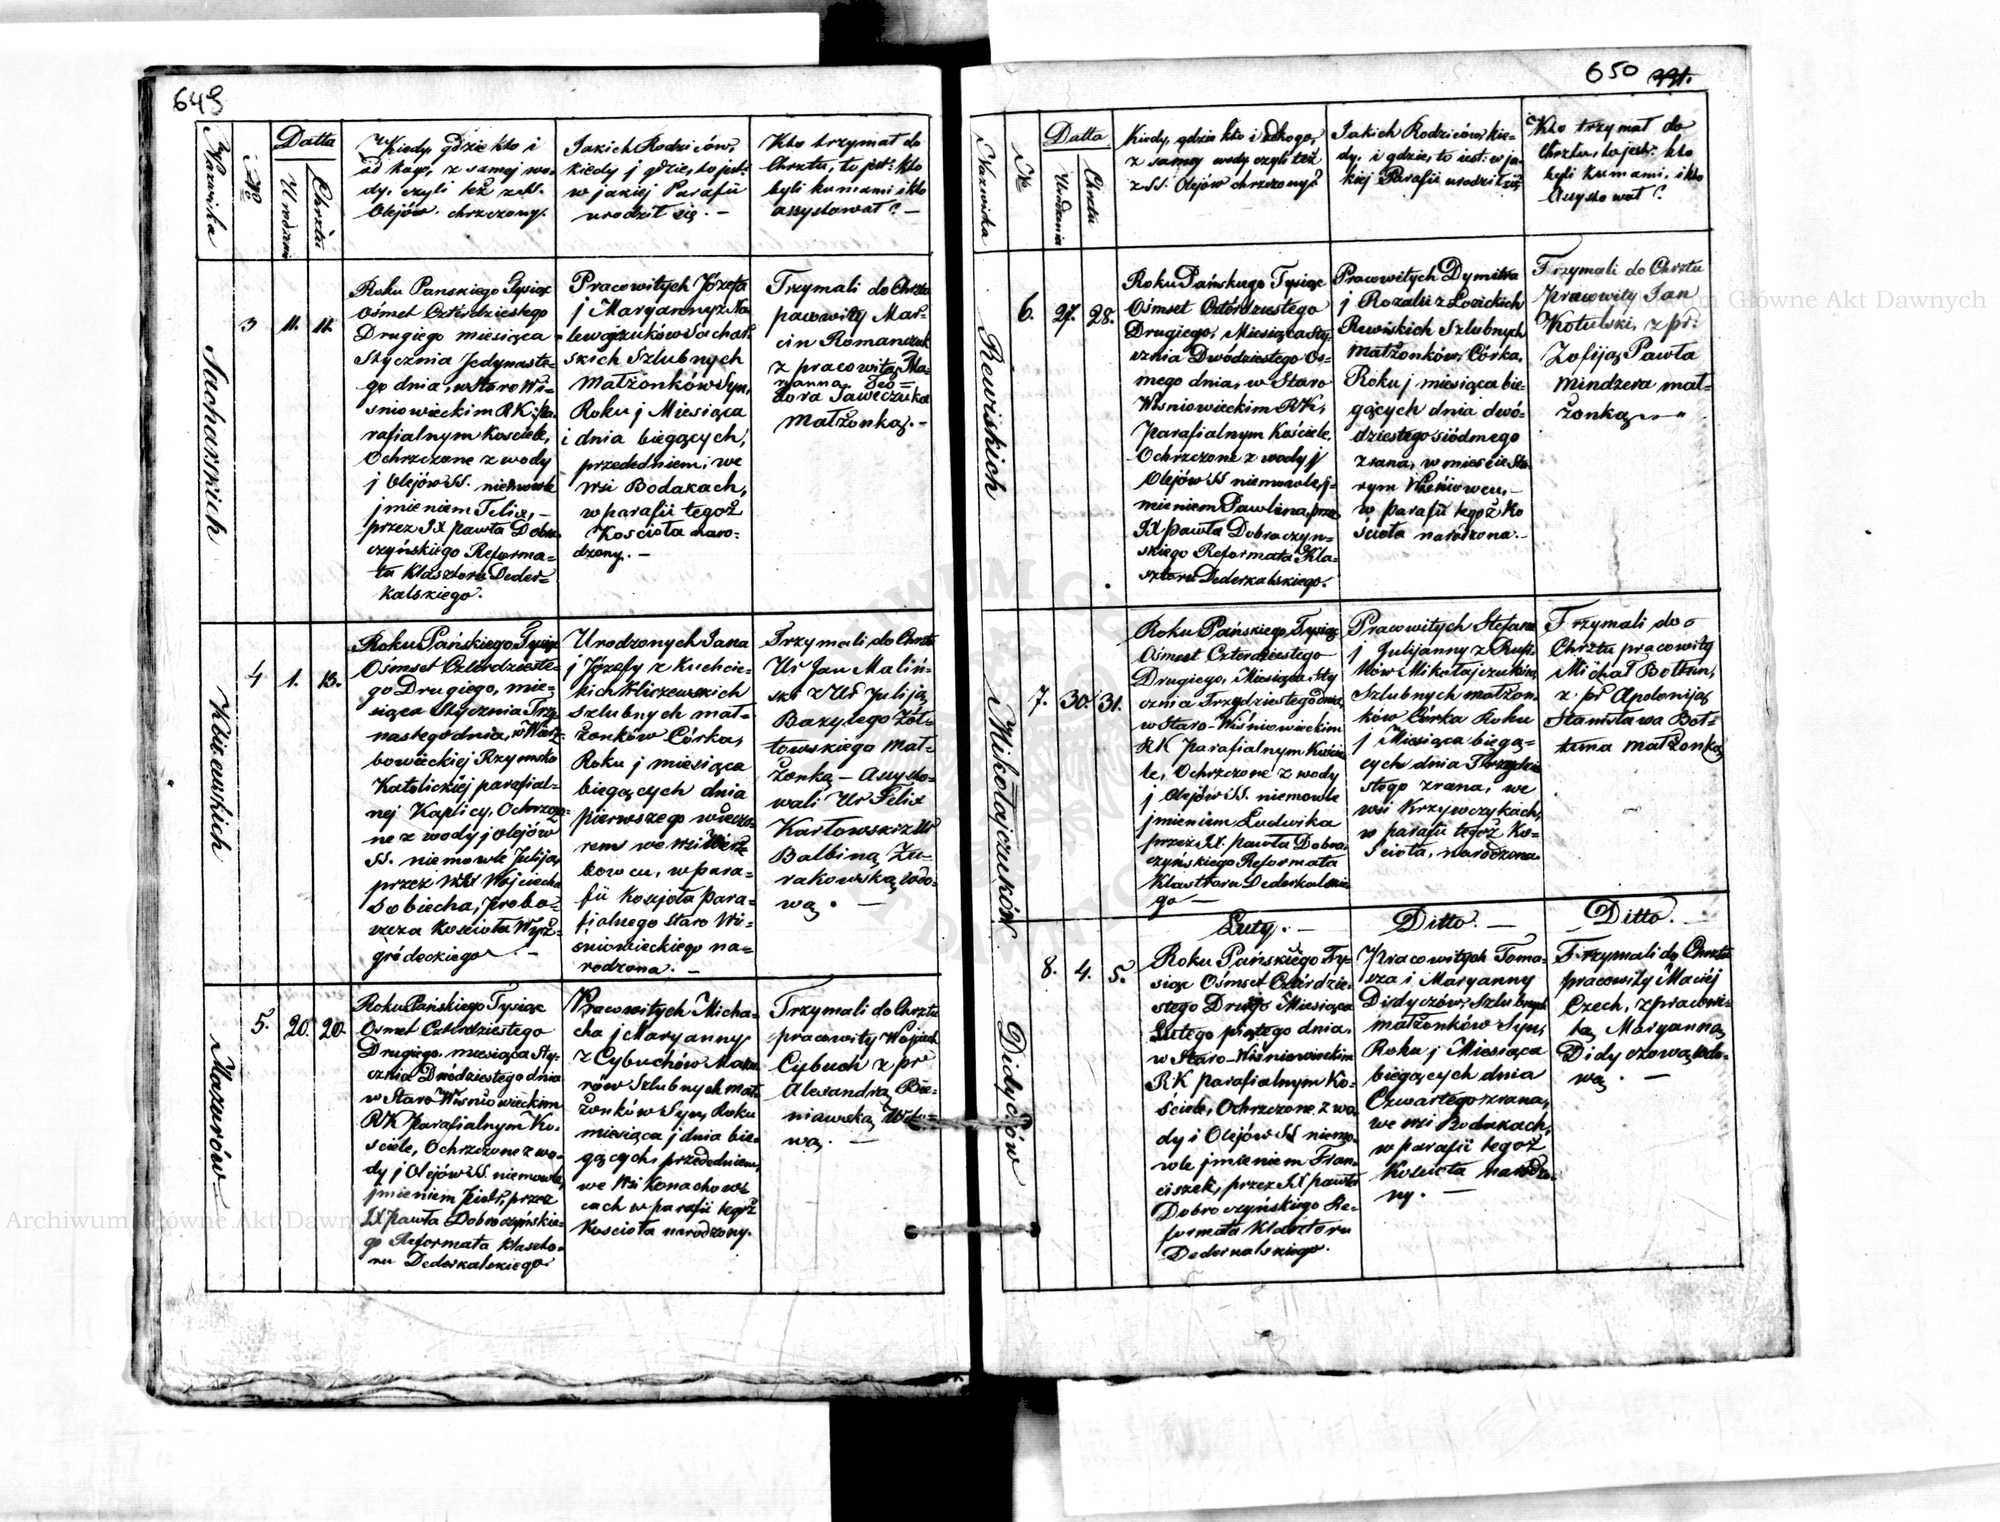 649
Nazwiska
No
Datta
Urodzenia
Chrztu
Kiedy, gdzie kto i
od kogo, z samej wo=
dy, czyli też z SS.
Olejów chrzczony.
Jakich Rodziców,
kiedy j gdzie, to jest:
w jakiej Parafii
urodził się. —
Kto trzymał do
Chrztu, to jest: kto
byli kumami i kto
assystował? —
Sucharskich
3
11.
11.
Roku Panskiego Tysiąc
Ośmset Czterdziestego
Drugiego miesiąca
Stycznia Jedynaste=
go dnia, w Staro Wi=
sniowieckim RK: Pa=
rafialnym Kosciele,
Ochrzczone z wody
j Olejów SS. niemowle
jmieniem Felix, —
przez JX Pawła Dobro
czyńskiego Reforma=
ta Klasztoru Deder=
kalskiego.
Pracowitych Józefa
j Maryanny z Na
lewajzuków Sochar
skich Szlubnych
Małżonków Syn,
Roku j Miesiąca
i dnia biegących,
przededniem, we
Wsi Bodakach,
w parafii tegoż
Kosciola naro=
dzony. —
Trzymali do Chrztu
pacowity Mar=
cin Romanczuk
z pracowitą Ma
ryanną Teo=
dora Saweczuka
Małżonką. —
Kliczewskich
4
1.
13.
Roku Pańskiego Tysiąc
Ośmset Czterdzieste=
go Drugiego, mie=
siąca Stycznia Trzy
nastego dnia, w Wierz=
bowieckiej Rzymsko
Katolickiéj parafial=
nej Kaplicy, Ochrzczo=
ne z wody j Olejów
SS. niemowle Julija,
przez WJX Wojciecha
Sobiecha, Probo=
szcza Kościoła Wysz=
gródeckiego. —
Urodzonych Jana
j Józefy z Kuchcie=
kich Kliczewskich
Szlubnych mał=
żonków Córka,
Roku j miesiąca
biegących dnia
pierwszego wieczo=
rem we Wsi Wierz
bowcu, w para=
fii Kosjoła para=
fialnego Staro Wi=
sniowieckiego na=
rodzona. —
Trzymali do Chrztu
Ur Jan Maliń=
ski z Ur Juliją
Bazylego Żół=
towskiego mał=
żonką — Assysto=
wali Ur Felix
Karłowski z Ur
Balbiną Żu=
rakowską wdo=
wą. —
Mazurów
5.
20.
20.
Roku Pańskiego Tysiąc
Ośmset Czterdziestego
Drugiego, miesiąca Sty=
cznia Dwódziestego dnia
w Staro Wisniowieckim
RK Parafialnym Ko=
sciele, Ochrzczone z wo=
dy j Olejów SS. niemowle,
jmieniem Piotr, przez
JX Pawła Dobroczyńskie=
go Reformata Klaszto=
ru Dederkalskiego
Pracowitych Micha=
cha j Maryanny
z Cybuchów Mazu
rów Szlubnych mał
żonków Syn, Roku
miesiąca j dnia bie=
gących, przededniem,
we Wsi Konachow=
cach w parafii tegoż
Kosciola narodzony.
Trzymali do Chrztu
pracowity Wojciech
Cybuch z pr
Alexandrą Bie=
niawską Wdo=
wą. —
650
Nazwiska
No
Datta
Urodzenia
Chrztu
Kiedy, gdzie kto i odkogo,
z samey wody czyli też
z SS. Olejów chrzczony?
Jakich Rodziców, kie=
dy, i gdzie, to iest: w ja=
kiej Parafii urodził się
Kto trzymał do
Chrztu, to jest: kto
byli kumami, i kto
Assystował?
Rewiskich
6.
27.
28.
Roku Pańskiego Tysiąc
Ośmset Czterdziestego
Drugiego, Miesiąca Sty=
cznia Dwódziestego Os=
mego dnia, w Staro
Wisniowieckim RK,
Parafialnym Kościele,
Ochrzczone z wody j
Olejów SS niemowle, j=
mieniem Pawlina, przez
JX Pawła Dobroczyn=
skiego Reformata Kla=
sztoru Dederkalskiego.
Pracowitych Dymitra
j Rozalii z Łozickich
Rewiskich Szlubnych
Małżonków, Córka,
Roku j miesiąca bie=
gących dnia dwó=
dziestego siódmego
zrana, w miescie Sta=
rym Wisniowcu, —
w parafii tegoż Ko
ścioła narodzona. —
Trzymali do Chrztu
Pracowity Jan
Kotulski, z pr:
Zofiją Pawła
Mindzera mał=
żonką
Mikołajczuków
7.
30.
31.
Roku Pańskiego Tysiąc
Ośmset Czterdziestego
Drugiego, Miesiąca Sty
cznia Trzydziestego dnia,
w Staro-Wiśniowieckim
RK Parafialnym Koście
le, Ochrzczone z wody
j Olejów SS. niemowle
jmieniem Ludwika
przez JX. Pawła Dobro
czyńskiego Reformata
Klasztoru Dederkalskie
go —
Pracowitych Stefana
j Julijanny z Rusi
nów Mikołajczuków,
Szlubnych małżon=
ków Córka Roku
j Miesiąca biegą=
cych dnia Trzydzie
stego zrana, we
wsi Krzywczykach,
w parafii tegoż Ko=
ścioła, narodzona.
Trzymali do
Chrztu pracowity
Michał Bołtun,
z pr Apoloniją
Stanisława Boł=
tuna małżonką
Didyczów
Luty. —
Ditto. —
Ditto. —
8.
4.
5.
Roku Pańskiego Ty=
siąc Ośmset Czterdzie=
stego Drugo Miesiąca
Lutego piątego dnia,
w Staro-Wiśniowieckim
RK parafialnym Ko=
ściele, Ochrzczone z wo
dy i Olejów SS niemo=
wle jmieniem Fran=
ciszek, przez JX pawła
Dobroczyńskiego Re=
formata Klasztoru
Dederkalskiego.
Pracowitych Toma=
sza i Maryanny
Didyczów, Szlubnych
małżonków Syn,
Roku j Miesiąca
biegących dnia
Czwartego zrana,
we wsi Bodakach,
w parafii tegoż
Kosciola narodzo=
ny. —
Trzymali do Chrztu
pracowity Maciej
Czech, z pracowi=
tą Maryanną
Didyczową wdo=
wą. —
Archiwum Główne Akt Dawnych
Archiwum Główne Akt Dawnych